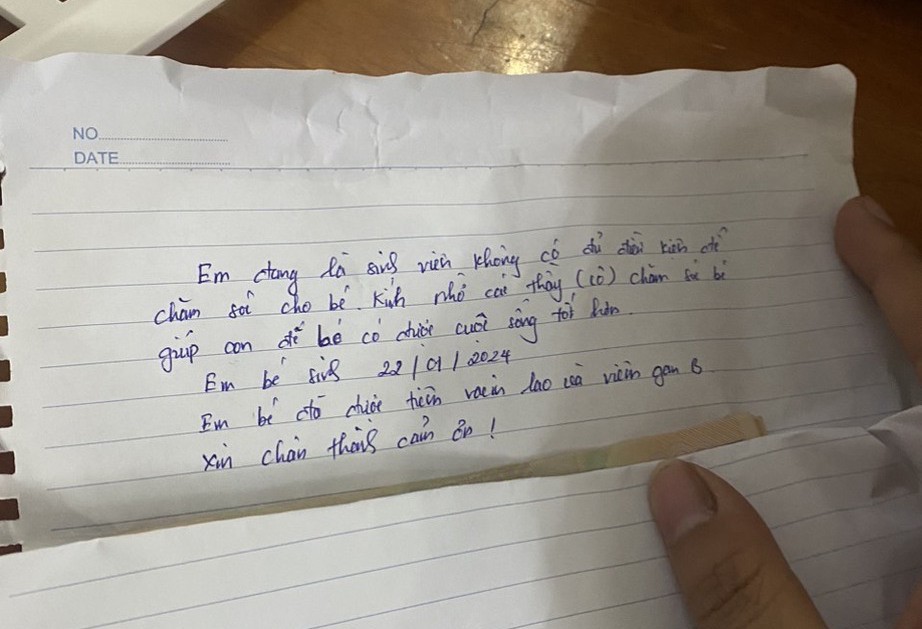 NO
DATE
Em đang là sinh viên không có đủ điều kiện để
chăm sóc cho bé. Kính nhờ các thầy (cô) chăm sóc bé
giúp con để bé có được cuộc sống tốt hơn.
Em bé sinh 22/01/2024
Em bé đã được tiêm vacin lao và viêm gan B
xin chân thành cảm ơn!